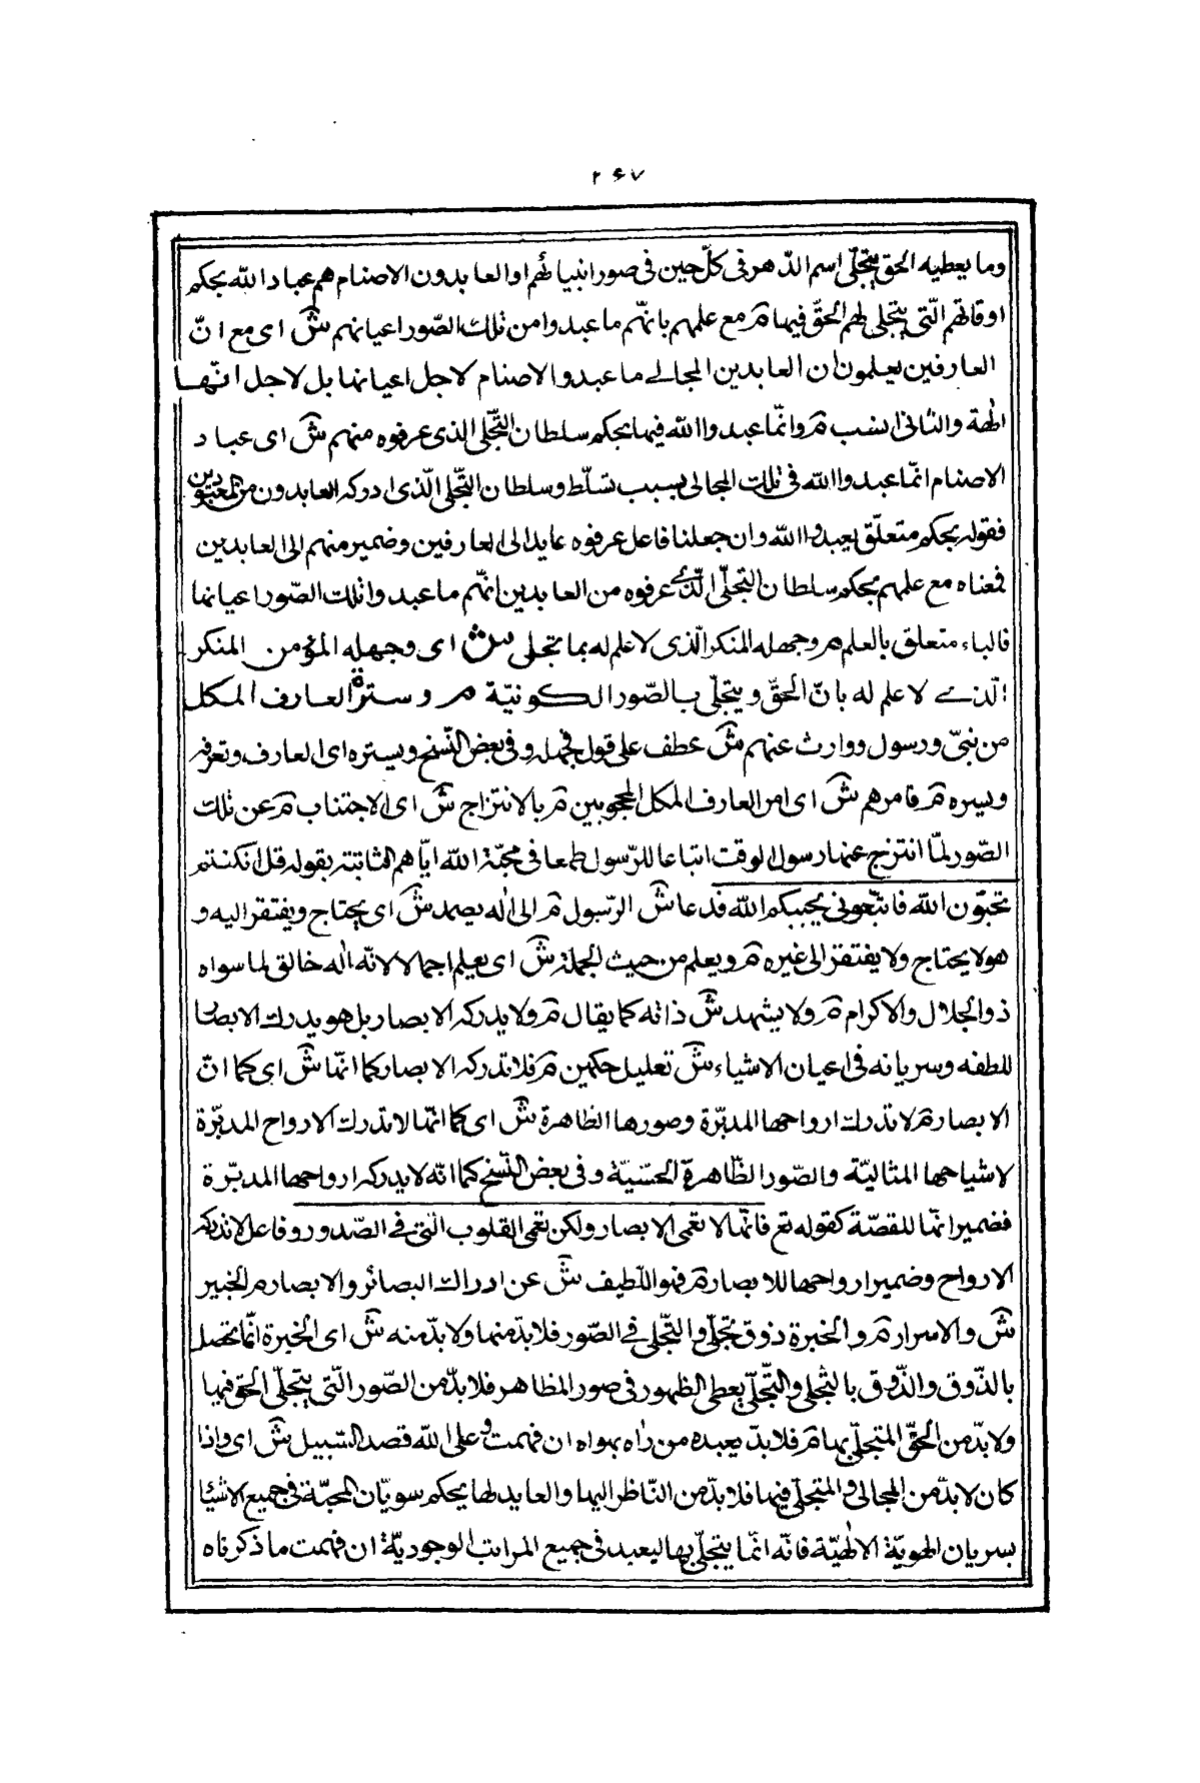 ٢٦٧
وما يعطيه الحق يتجلّى اسم الدّهر فى كلّ حين فى صور انبيائهم او العابدون الاصنام هم عباد الله بحكم
اوقاتهم الّتى يتجلى لهم الحقّ فيها مر مع علمهم بانّهم ما عبدوا من تلك الصّور اعيانهم ش اى مع انّ
العارفين يعلمون ان العابدين المجالے ما عبدوا الاصنام لاجل اعيانها بل لاجل انّهــا
الهة والثانى انسب مر وانّما عبدوا الله فيها بحكم سلطان التّجّلى الذى عرفوه منهم ش اى عباد
الاصنام انّما عبدوا الله فى تلك المجالى بسبب تسلّط وسلطان التّجّلى الّذى ادركه العابدون من المعبودين
فقوله بحكم متعلّق بعبدوا الله وان جعلنا فاعل عرفوه عايد الى العارفين وضمير منهم الى العابدين
فمعناه مع علمهم بحكم سلطان التجلّى الّذے عرفوه من العابدين انّهم ما عبدوا تلك الصّور اعيانها
فالباء متعلق بالعلم مر وجهله المنكر الّذى لا علم له بما تجلى ش اى وجهله المؤمن المنكر
الّذے لا علم له بانّ الحقّ ويتجلّى بالصّور الكونيّة مر وسترة العارف المكل
من نبىّ ورسول ووارث عنهم ش عطف على قول فجهله وفى بعض النّسخ ويستره اى العارف وتعرفه
ويسره مر فامرهم ش اى امر العارف المكل المحجوبين مر بالانتزاج ش اى الاجتناب مر عن تلك
الصّور لمّا انتزج عنها رسول الوقت اتباعا للرّسول طمعا فى محبّة الله ايّاهم الثابتة بقوله قل ان كنتم
تحبّون الله فاتّبعونى يحببكم الله فدعا ش الرّسول مر الى اله يصمد ش اى يحتاج ويفتقر اليه و
هو لا يحتاج ولا يفتقر الى غيره مر ويعلم من حيث الجملة ش اى يعلم اجمالا لانّه اله خالق لما سواه
ذو الجلال والاكرام مر ولا يشهد ش ذاته كما يقال مر ولا يدركه الابصار بل هو يدرك الابصار
للطفه وسريانه فى اعيان الاشياء ش تعليل حكمين مر فلا تدركه الابصار كما انّها ش اى كما انّ
الابصار مر لا تدرك ارواحها المدبّرة وصورها الظاهرة ش اى كما انّها لا تدرك الارواح المدبّرة
لاشباحها المثاليّة والصّور الظّاهرة الحسّيّة وفى بعض النّسخ كما انّه لا يدركه ارواحها المدبّرة
فضمير انّها للقصّة كقوله تع فانّها لا تعمى الابصار ولكن تعمى القلوب الّتى فى الصّدور وفاعل لا تدركه
الارواح وضمير ارواحها للابصار مر فهو اللّطيف ش عن ادراك البصائر والابصار مر الخبير
ش والاسرار مر والخبرة ذوق تجلّى والتّجّلى فے الصّور فلا بدّ منها ولا بدّ منه ش اى الخبرة انّما تحصل
بالذّوق والذّوق بالتّجلى والتّجّلى يعطى الظهور فى صور المظاهر فلا بدّ من الصّور الّتى يتجلّى الحق فيها
ولا بدّ من الحقّ المتجلّى بها مر فلا بدّ يعبده من راه بهواه ان فهمت وعلى الله قصد السّبيل ش اى واذا
كان لا بدّ من المجالى والمتجلّى فيها فلا بدّ من النّاظر اليها والعابد لها بحكم سريان المحبّة فى جميع الاشياء
بسريان الهويّة الالهيّة فانّه انّما يتجلّى بها ليعبد فى جميع المراتب الوجوديّة ان فهمت ما ذكرناه